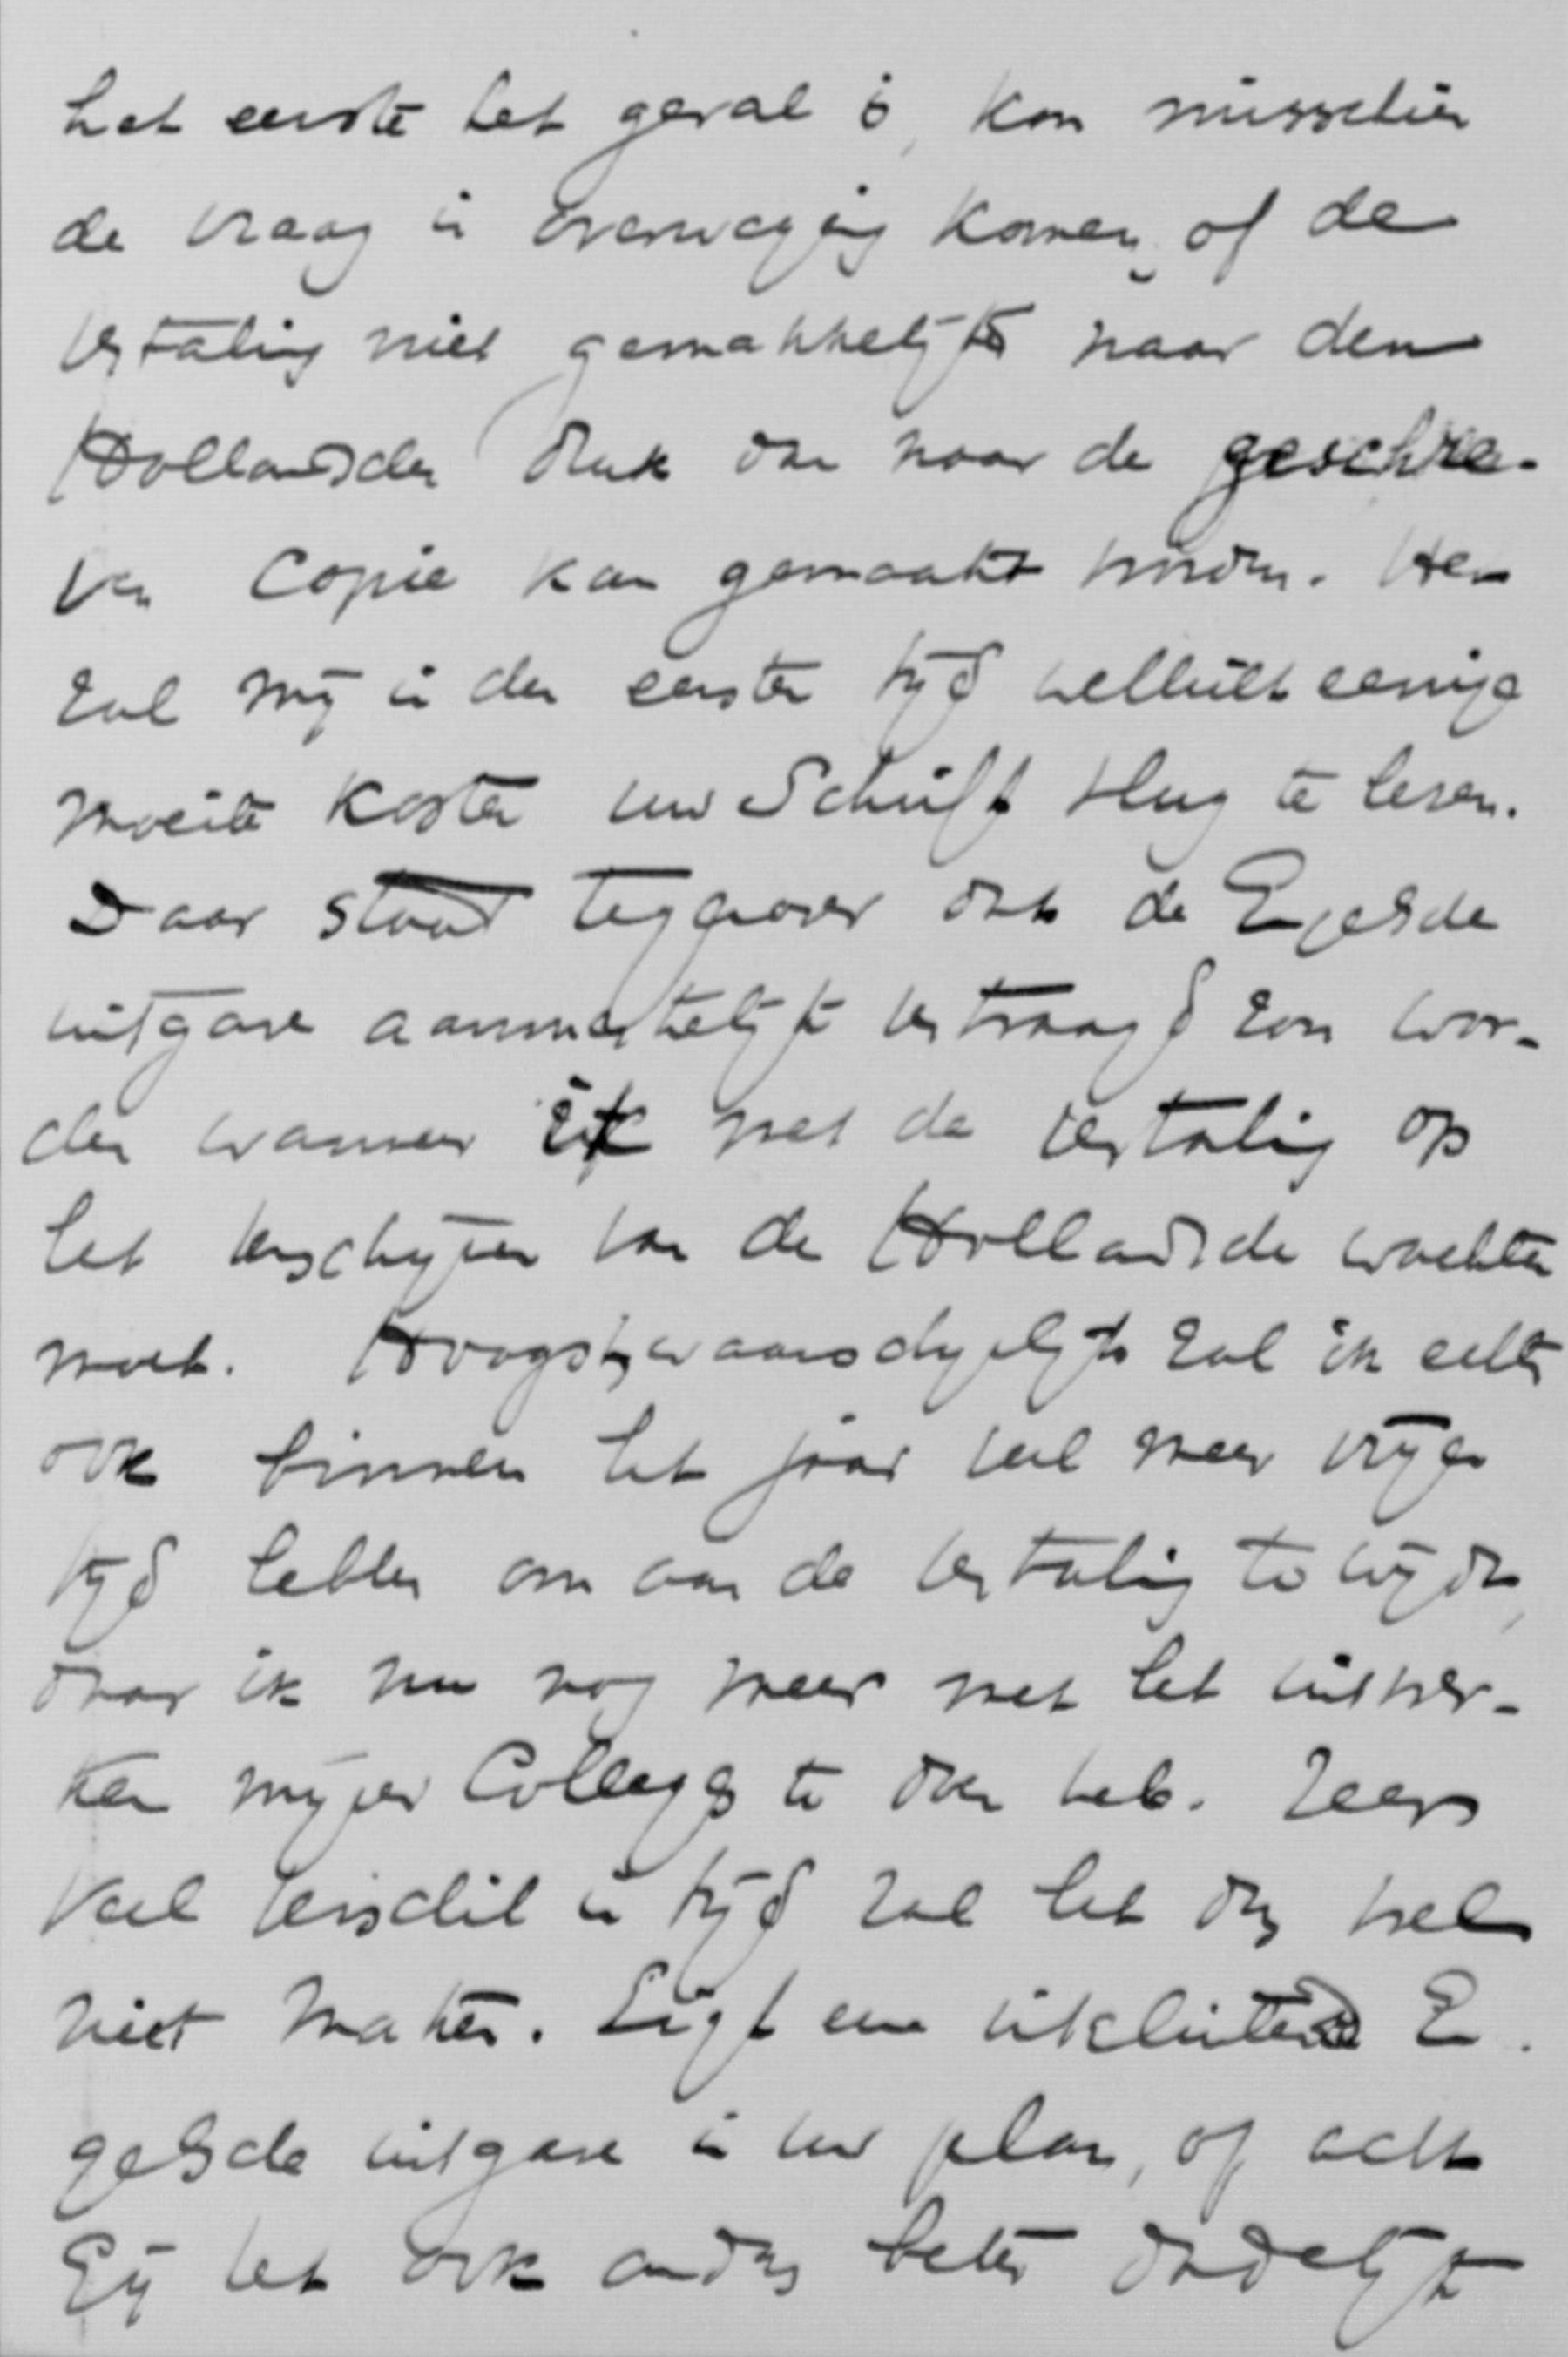 het eerste het geval is, kon misschien
de vraag in overweging komen, of de
vertaling niet gemakkelijk naar den
Hollandschen druk dan naar de geschre-
ven Copie kan gemaakt worden. Het
zal mij in den eersten tijd wellicht eenige
moeite kosten uw Schrift vlug te lezen.
Daar staat tegenover dat de Engelsche
uitgave aanmerkelijk vertraagd zou wor-
den wanneer ik met de vertaling op
het verschijnen van de Hollandsche wachten
moet. Hoogstwaarschijnlijk zal ik echter
ook binnen het jaar veel meer vrijen
tijd hebben om aan de vertaling te wijden,
daar ik nu nog meer met het uitwer-
ken mijner Colleges te doen heb. Zeer
veel verschil in tijd zal het dus wel
niet maken. Ligt een uitsluitend En-
gelsche uitgave in uw plan, of acht
Gij het ook anders beter dadelijk